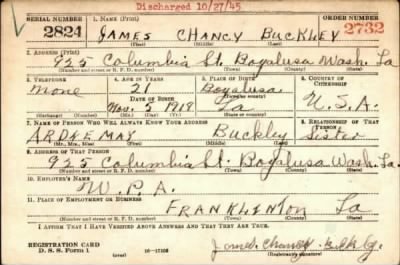 Discharged 10/27/45
SERIAL NUMBER 1. NAME (Print) ORDER NUMBER
2824 JAMES CHANCY BUCKLEY 2732
(First) (Middle) (Last)
2. ADDRESS (Print)
925 Columbia St. Bogalusa Wash. La
(Number and street or R. F. D. number) (Town) (County) (State)
3. TELEPHONE 4. AGE IN YEARS 5. PLACE OF BIRTH 6. COUNTRY OF CITIZENSHIP
none 21 Bogalusa
DATE OF BIRTH (Town or county)
Nov. 5 1918 La U.S.A.
(Exchange) (Number) (Mo.) (Day) (Yr.) (State or country)
7. NAME OF PERSON WHO WILL ALWAYS KNOW YOUR ADDRESS 8. RELATIONSHIP OF THAT PERSON
MAY Buckley Sister
(Mr., Mrs., Miss) (First) (Middle) (Last)
9. ADDRESS OF THAT PERSON
925 Columbia St. Bogalusa Wash. La.
(Number and street or R. F. D. number) (Town) (County) (State)
10. EMPLOYER'S NAME
W.P.A.
11. PLACE OF EMPLOYMENT OR BUSINESS
FRANKLINTON La
(Number and street or R. F. D. number) (Town) (County) (State)
I AFFIRM THAT I HAVE VERIFIED ABOVE ANSWERS AND THAT THEY ARE TRUE.
REGISTRATION CARD
D. S. S. Form 1 16-17105 James Chancy Buckley